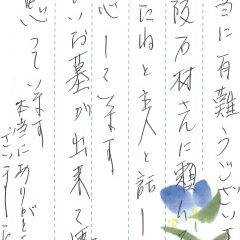 当に有難うございま
阪石材さんに頼んで
たねと主人と話し
感じています
いお墓が出来て
思っています
本当にありがと
ございました